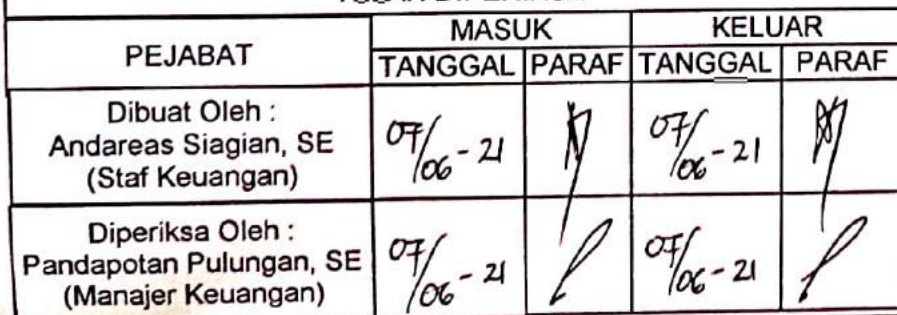 MASUK KELUAR
PEJABAT
TANGGAL PARAF TANGGAL PARAF
Dibuat Oleh :
Andareas Siagian, SE
(Staf Keuangan)
07/06-21 07/06-21
Diperiksa Oleh :
Pandapotan Pulungan, SE
(Manajer Keuangan)
07/06-21 07/06-21